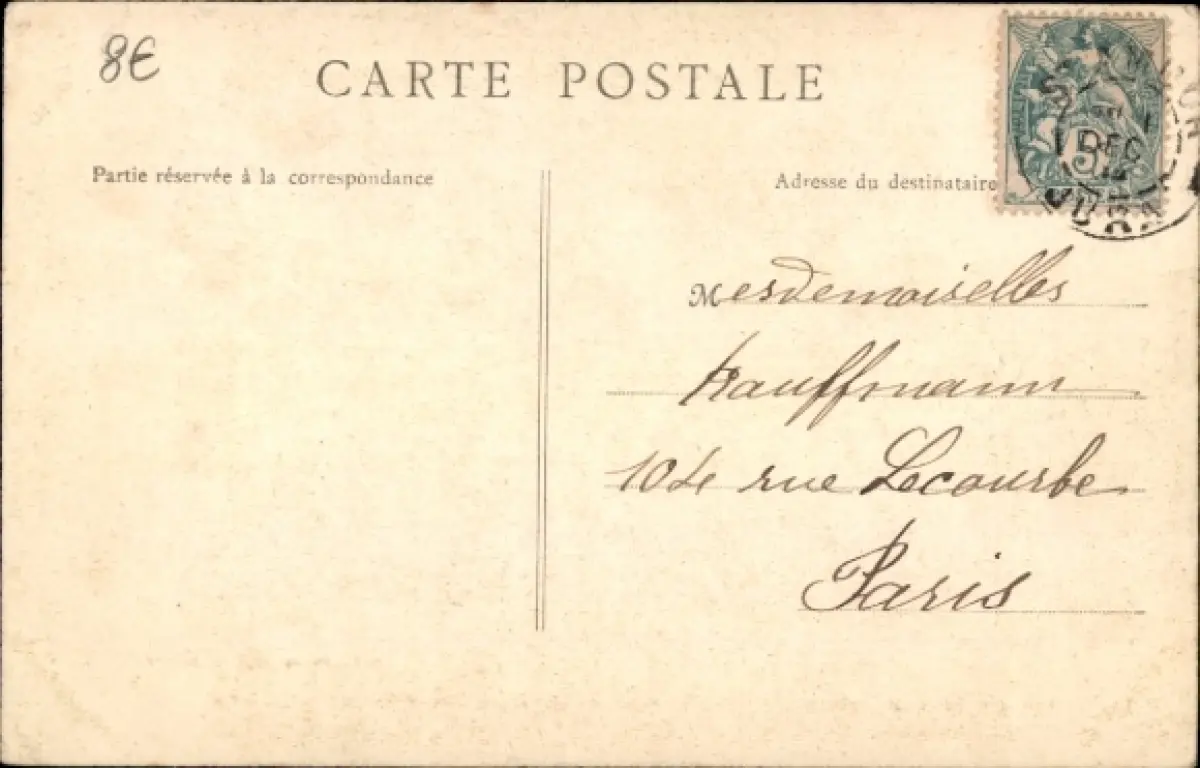 8€
CARTE POSTALE
Partie réservée à la correspondance
Adresse du destinataire
DEC
JURA
5
Mesdemoiselles
Kauffmann
104 rue Lecourbe
Paris